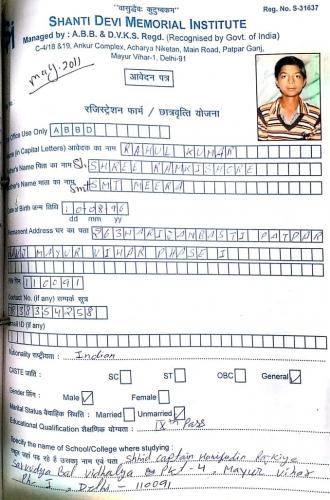 "वासुद्धेवः कुटुम्बकम"
Reg. No. S-31637
SHANTI DEVI MEMORIAL INSTITUTE
Managed by : A.B.B. & D.V.K.S. Regd. (Recognised by Govt. of India)
C-4/18 &19, Ankur Complex, Acharya Niketan, Main Road, Patpar Ganj,
Mayur Vihar-1, Delhi-91
may. 2011
आवेदन पत्र
रजिस्ट्रेशन फार्म / छात्रवृत्ति योजना
Office Use Only ABBD
(in Capital Letters) आवेदक का नाम RAHUL KUMAR
Name पिता का नाम SHREE RAMKISHORE
Name माता का नाम SMT MEERA
Date of Birth जन्म तिथि
dd mm yy
Permanent Address घर का पता
MAYUR VIHAR PHASE I
110091
Contact No. (if any) सम्पर्क सूत्र
838354258
Email ID (if any)
Nationality राष्ट्रीयता : Indian
CASTE जाति : SC ST OBC General ✓
Gender लिंग : Male ✓ Female
Marital Status वैवाहिक स्थिति : Married Unmarried ✓
Educational Qualification शैक्षणिक योग्यता : IXth Pass
Specify the name of School/College where studying :
जहां पढ़ रहे है उसका नाम एवं पता : Captain
Sarvodya Bal vidhalya Pkt-4, Mayur vihar
Ph-I, Delhi - 110091